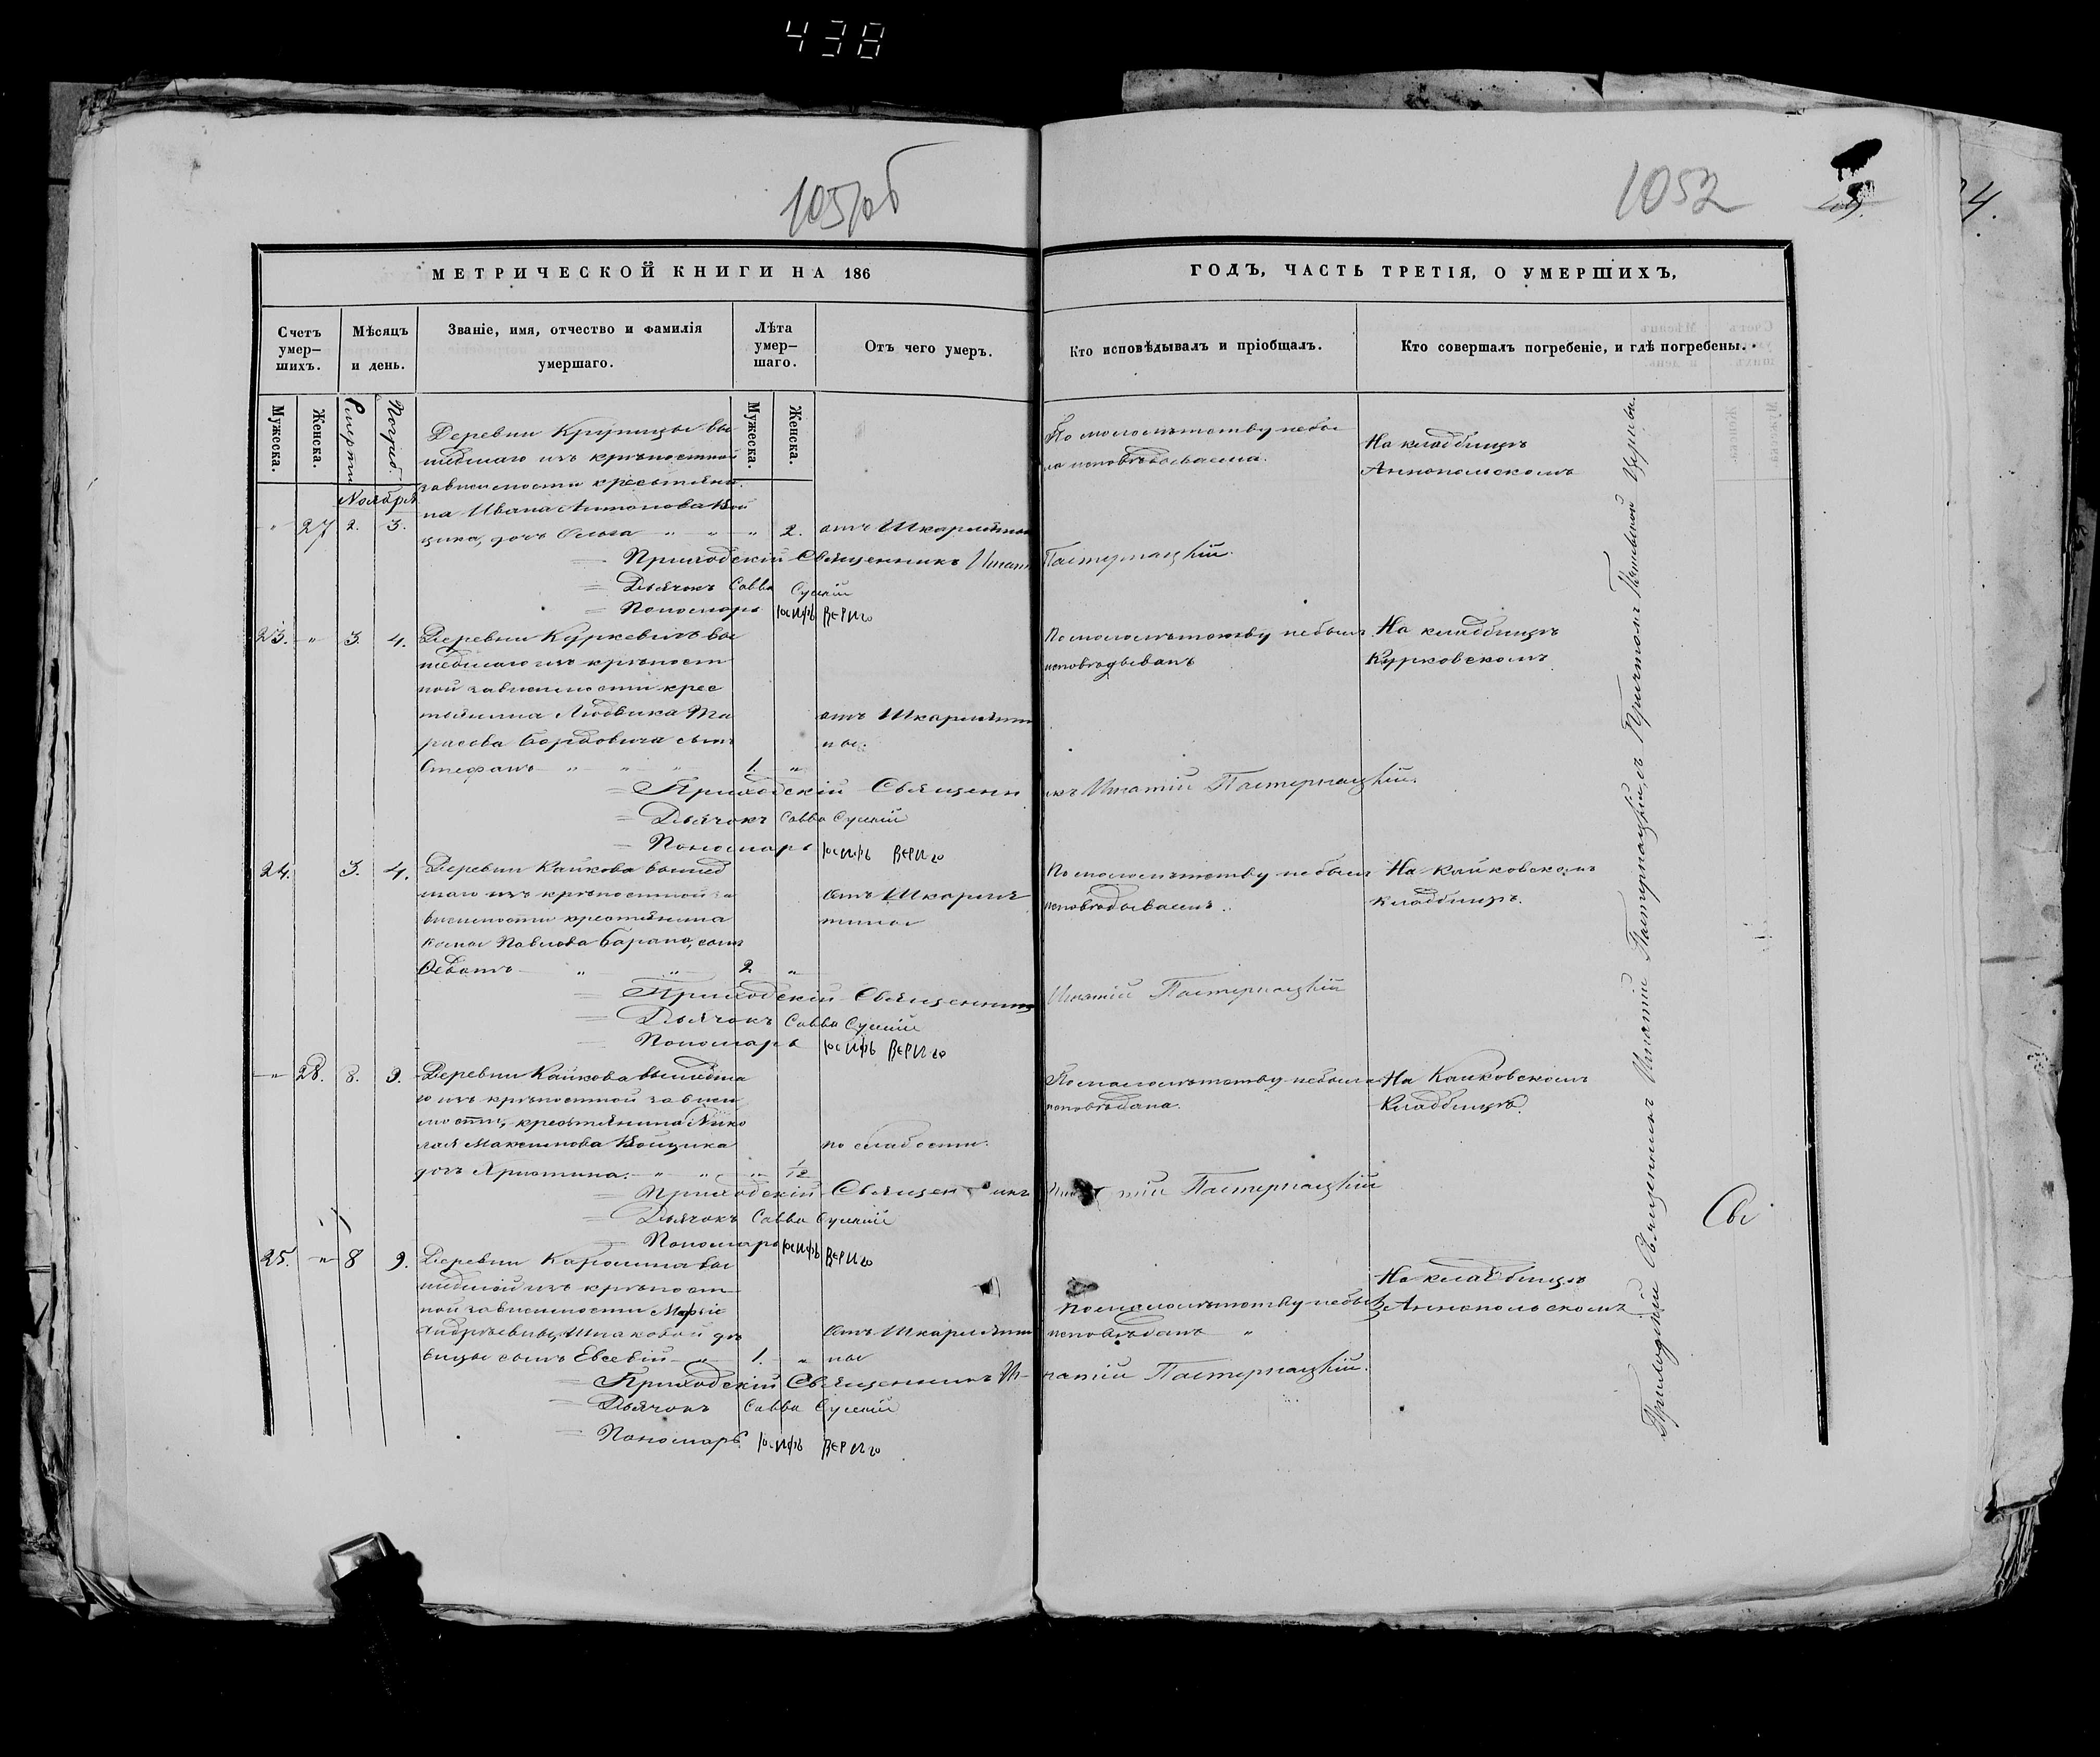 438
1051об
1052
МЕТРИЧЕСКОЙ КНИГИ НА 186
ГОДЪ, ЧАСТЬ ТРЕТІЯ, О УМЕРШИХЪ,
Счетъ умер-шихъ.
Мѣсяцъ и день.
Званіе, имя, отчество и фамилія умершаго.
Лѣта умер-шаго.
Отъ чего умеръ.
Кто исповѣдывалъ и пріобщалъ.
Кто совершалъ погребеніе, и гдѣ погребены.
Мужеска.
Женска.
Смерти
Погреб.
Мужеска.
Женска.
Ноября
Деревни Крупицы вы
шедшаго изъ крѣпостной
зависимости крестьяни
на Ивана Антонова Вой
27 2. 3. щика, дочь Ольга " " " 2. отъ Шкарлятины
По малолѣтству небы
ла исповѣдываема.
На кладбищѣ
Аннопольскомъ
Приходскій Священникъ Игнатій Пастернацкій.
Дьячокъ Савва Суцкій
Пономарь Іосифъ Верига
23. " 3. 4. Деревни Куркевичъ вы
шедшаго изъ крѣпост
ной зависимости крес
тьянина Людвика Та
расова Бордовича сынъ
Стефанъ " " " 1. "
отъ Шкарляти
ны.
По малолѣтству небылъ
исповѣдыванъ
На кладбищѣ
Курковскомъ.
Приходскій Священникъ Игнатій Пастернацкій.
Дьячокъ Савва Суцкій
Пономарь Іосифъ Верига
24. 3. 4. Деревни Кайкова вышед
шаго изъ крѣпостной за
висимости крестьянина
Козмы Павлова Барана, сынъ
" " 2 "
отъ Шкарля
тины
По малолѣтству небылъ
исповѣдываемъ.
На Кайковскомъ
кладбищѣ.
Приходскій Священникъ Игнатій Пастернацкій
Дьячокъ Савва Суцкій
Пономарь Іосифъ Верига
" 28. 8. 9. Деревни Кайкова вышедша
го изъ крѣпостной зависи
мости, крестьянина Нико
лая Максимова Войщика
дочь Христина. " " " 1/12
по слабости.
По малолѣтству небыла
исповѣдана.
На Кайковскомъ
Кладбищѣ.
Приходскій Священникъ Игнатій Пастернацкій
Дьячокъ Савва Суцкій
Пономарь Іосифъ Верига
25. " 8 9. Деревни Каролина вы
шедшей изъ крѣпост
ной зависимости Маріи
Андреевны Шпаковой дѣ
вицы сынъ Евсевій " 1. "
отъ Шкарляти
ны
По малолѣтству небылъ
исповѣданъ "
На кладбищѣ
Аннопольскомъ
Приходскій Священникъ Игнатій Пастернацкій.
Дьячокъ Савва Суцкій
Пономарь Іосифъ Верига
Приходскій Священникъ Игнатій Пастернацкій съ Причтомъ церкви.
Св